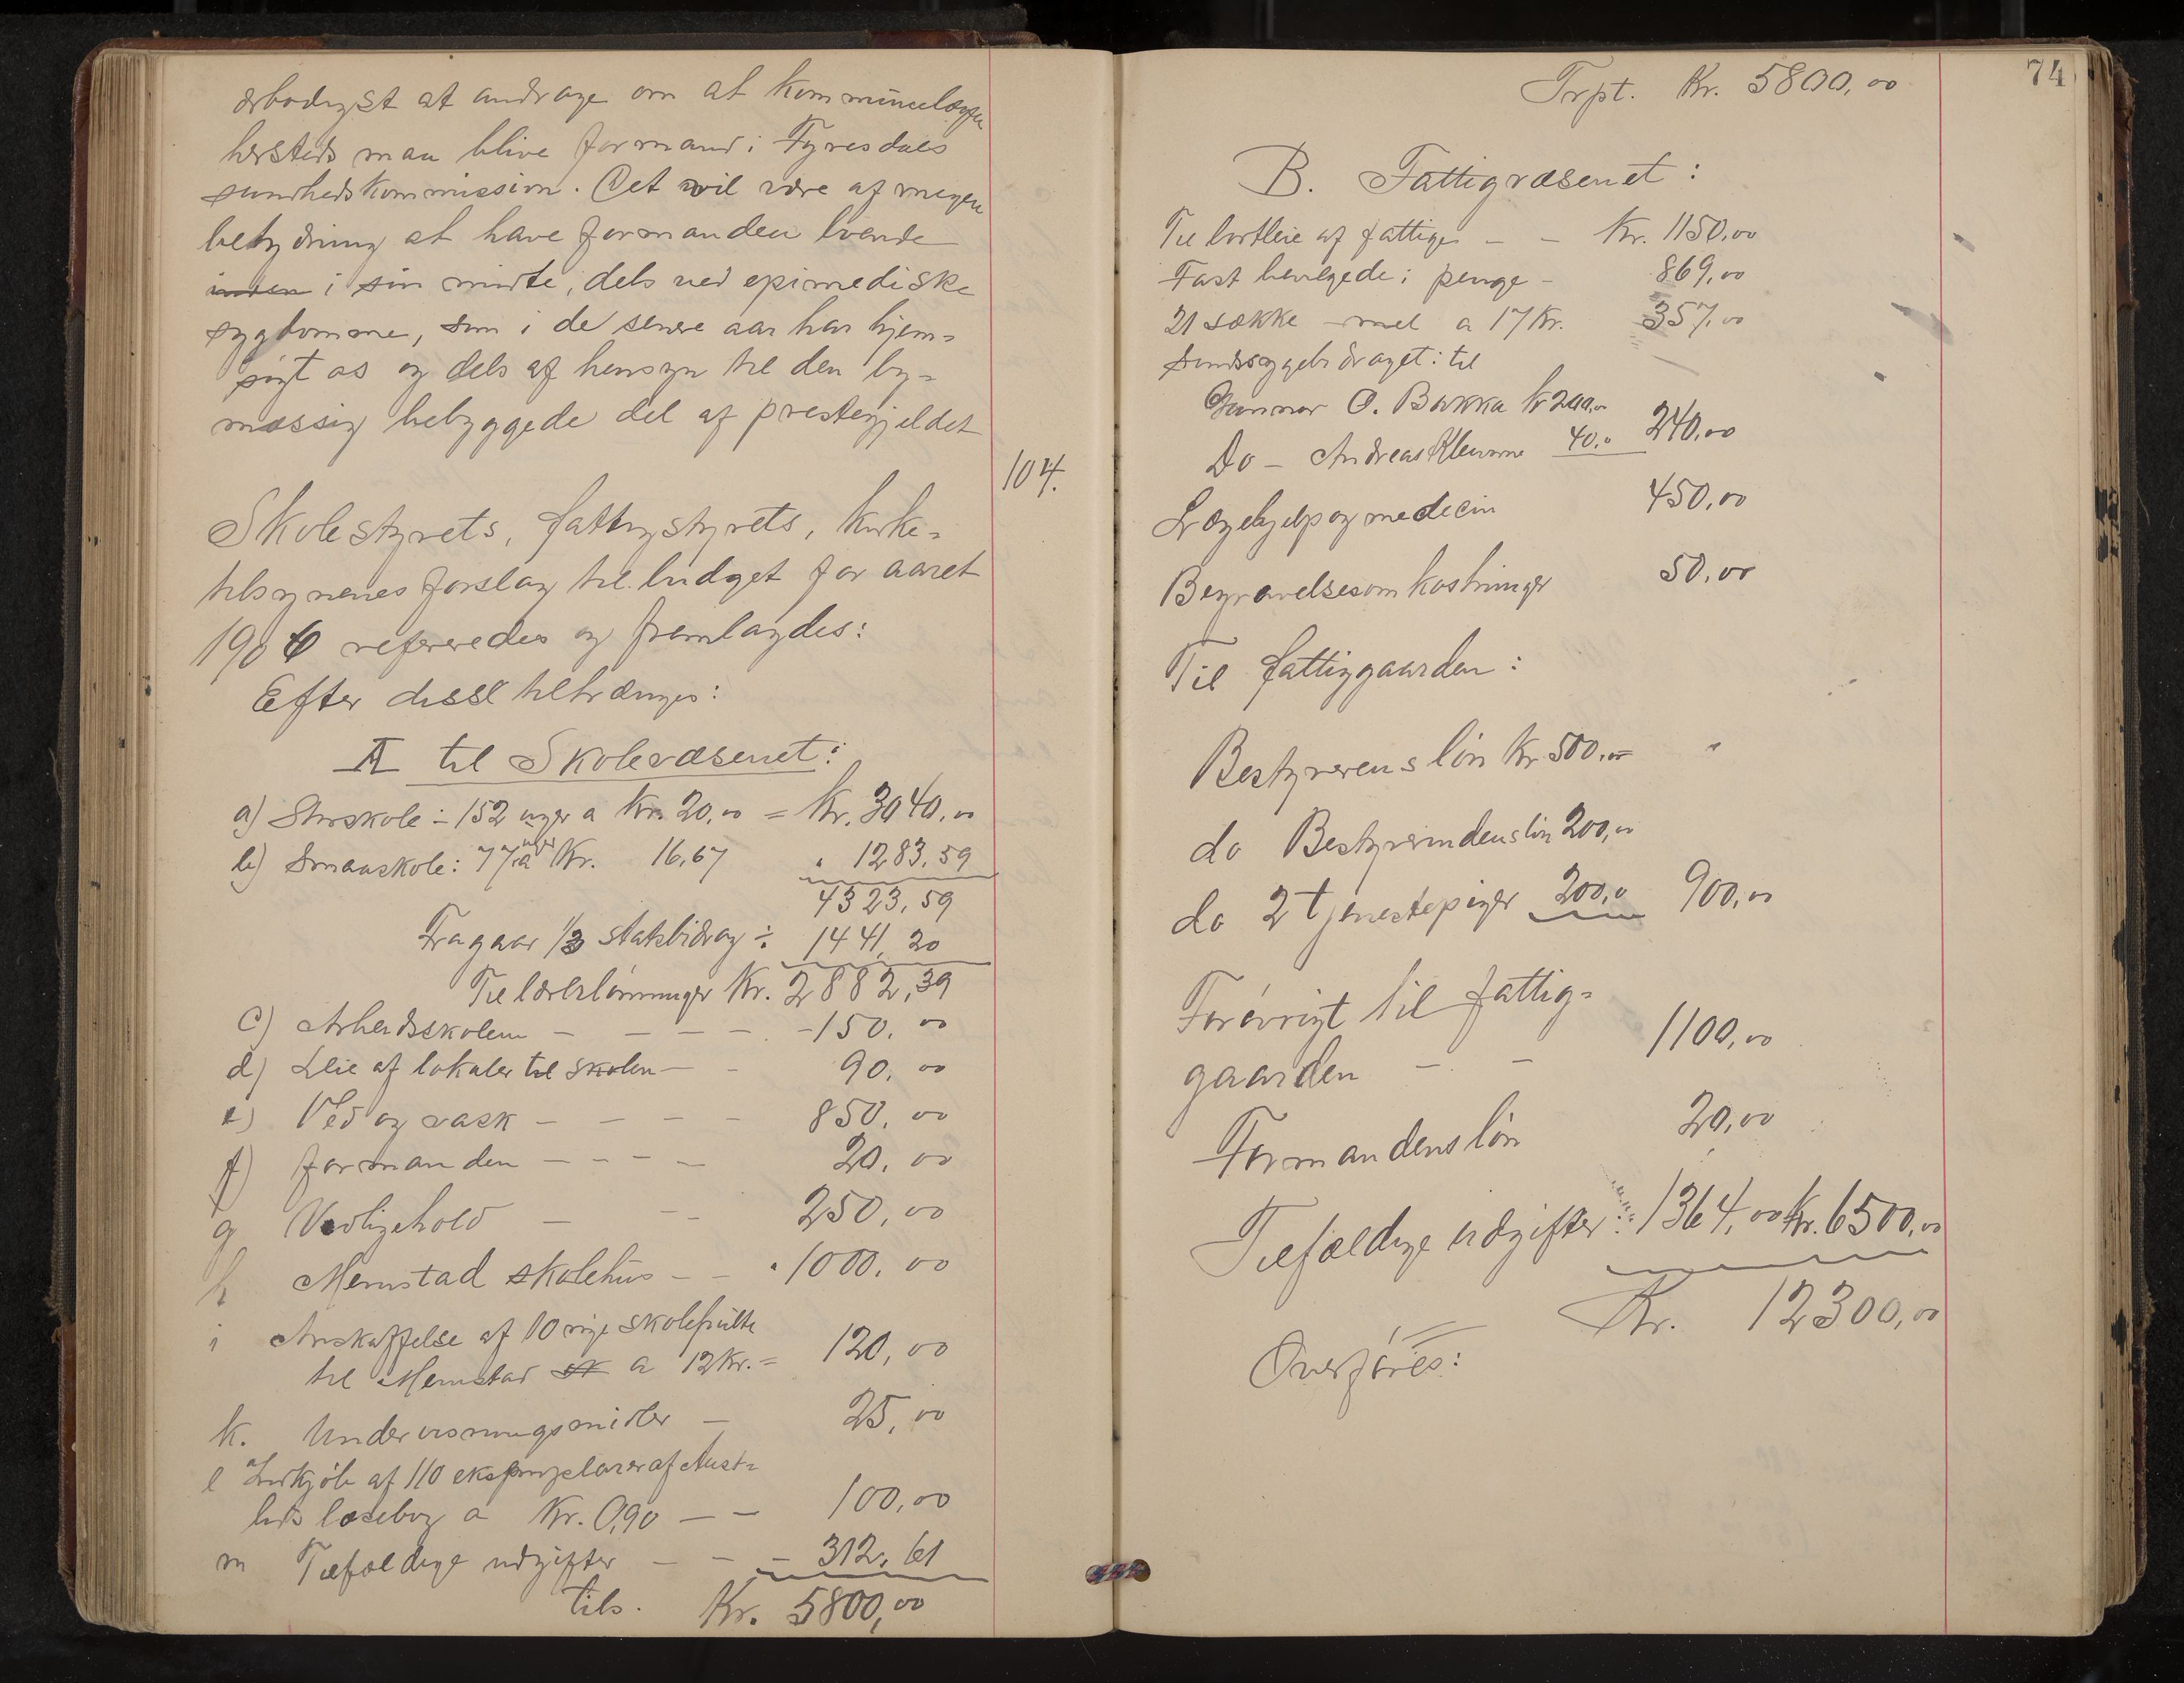 ærbødigst at andrage om at kommunelægen
hersteds maa blive formand i Fyresdals
sundhedskommission. Det vil være af megen
betydning at have formanden boende
inden i sin midte, dels ved epimediske
sygdomme, som i de senere aar har hjem-
søgt os og dels af hensyn til den by-
mæssig bebyggede del af prestegjeldet
104.
Skolestyrets, fattigstyrets, kirke-
tilsynenes forslag til budget for aaret
1906 refereredes og fremlagdes:
Efter disse tiltrænges:
A til Skolevæsenet:
a) Storskole: 152 uger a Kr. 20,00 = Kr. 3040,00
b) Smaaskole: 77 uger a Kr. 16,67 " 1283,59
4323,59
Fragaar 1/3 statsbidrag ÷ 1441,20
Til lærerlønninger Kr. 2882,39
c) Arbeidsskolen — — — — - 150,00
d) Leie af lokaler til skolen — - 90,00
e) Ved og vask — — — — 850,00
f) formanden — — — — 20,00
g Vedligehold — — - 250,00
h Momstad skolehus — — " 1000,00
i Anskaffelse af 10 nye skolepulte
til Momstad sk a 12 Kr. = 120,00
k. Undervisningsmidler — 25,00
l Indkjøb af 110 eksemplarer af Aust-
lids læsebog a Kr. 0,90 — — 100,00
m Tilfældige udgifter — — — 312,61
tils. Kr. 5800,00
74
Trpt. Kr. 5800,00
B. Fattigvæsenet:
Til bortleie af fattige — — Kr. 1150,00
Fast bevilgede i penge - 869,00
21 sække mel a 17 Kr. 357,00
Sindssygebidraget: til
Gunnar O. Bakka Kr 200,00
Do — Andreas Kleivane 40,0 240,00
Lægehjelp og medicin 450,00
Begravelsesomkostninger 50,00
Til fattiggaarden:
Bestyrerens løn Kr 500,00 "
do Bestyrerindens løn 200,00
do 2 tjenestepiger 200,0 900,00
Forøvrigt til fattig-
gaarden — — 1100,00
Formandens løn 20,00
Tilfældige udgifter: 1364,00 Kr. 6500,00
Kr. 12300,00
Overføres: